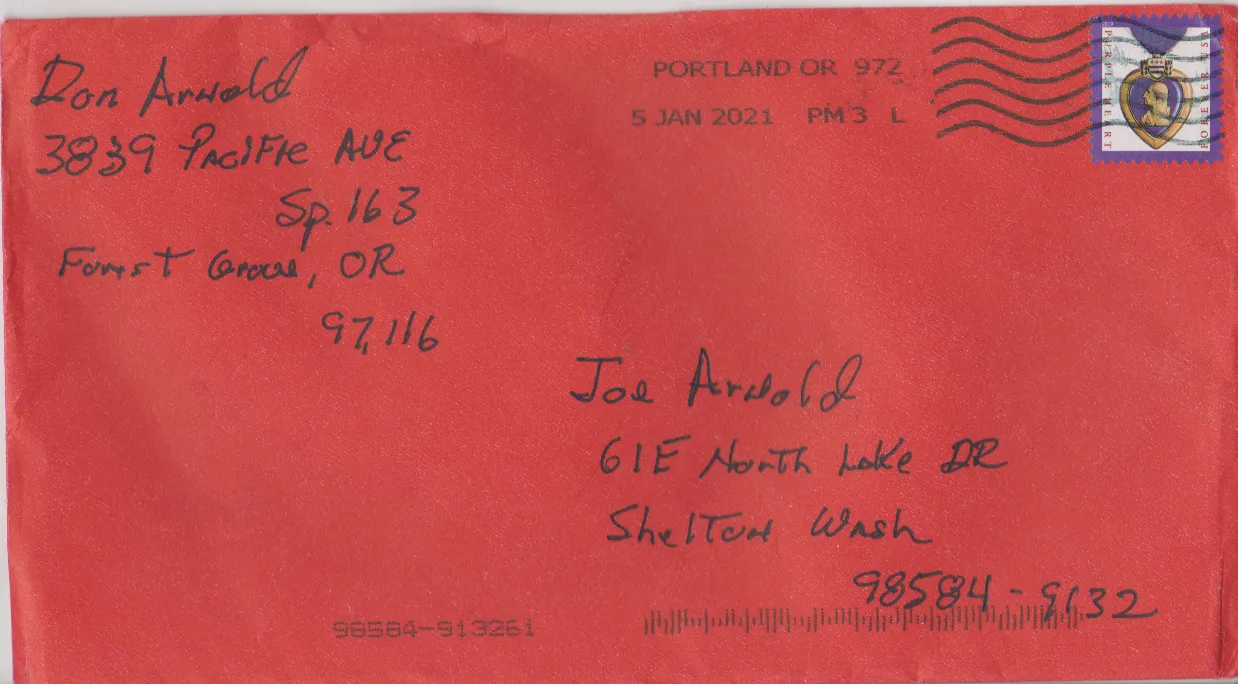 Don Arnold
3839 Pacific AVE
Sp. 163
Forest Grove, OR
97,116
PORTLAND OR 972
5 JAN 2021 PM 3 L
PURPLE HEART
FOREVER USA
Joe Arnold
61E North Lake DR
Shelton Wash
98584-9132
98584-913261